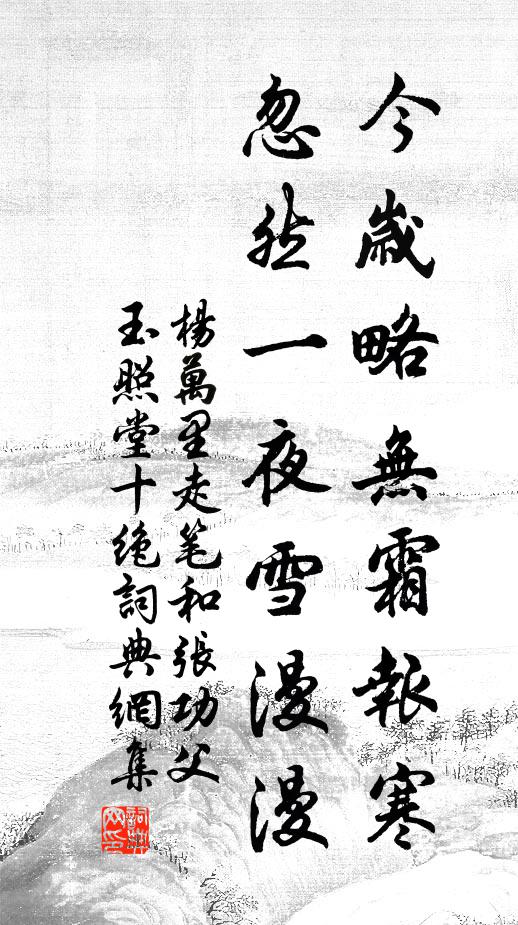 今歲略無霜報寒
忽然一夜雪漫漫
楊萬里走笔和張功父
玉照堂十绝詞典網集